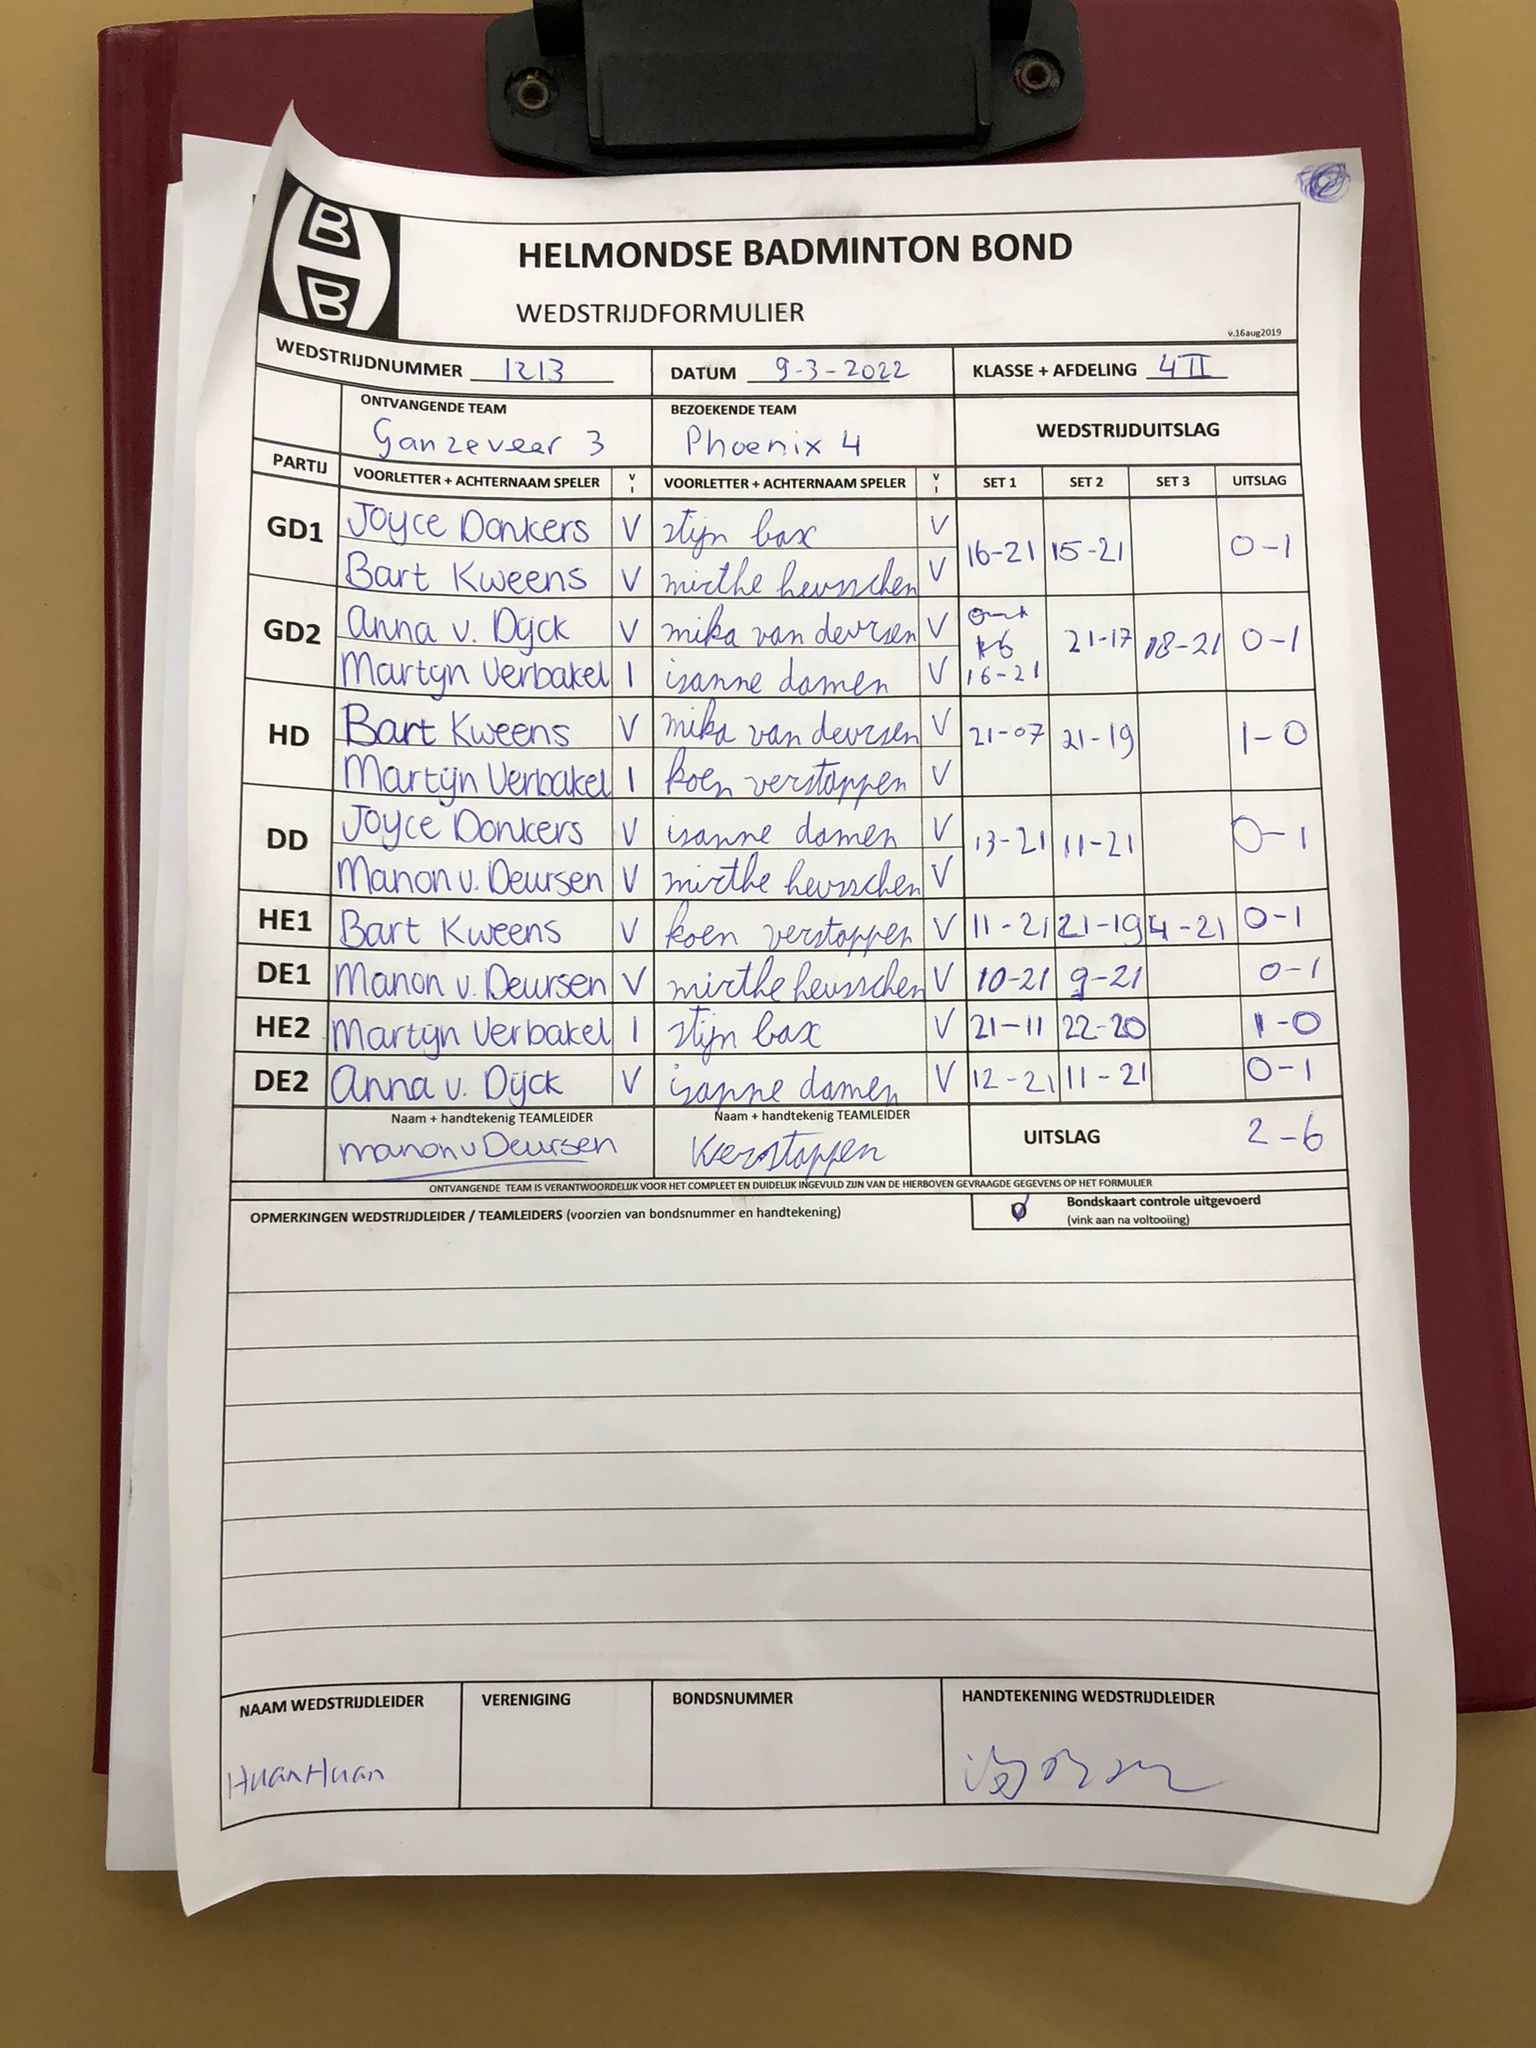 B
B
HELMONDSE BADMINTON BOND
WEDSTRIJDFORMULIER
v.16aug2019
WEDSTRIJDNUMMER 1213 DATUM 9-3-2022 KLASSE + AFDELING 4 II
ONTVANGENDE TEAM BEZOEKENDE TEAM WEDSTRIJDUITSLAG
Ganzeveer 3 Phoenix 4
PARTIJ VOORLETTER + ACHTERNAAM SPELER V I VOORLETTER + ACHTERNAAM SPELER V I SET 1 SET 2 SET 3 UITSLAG
GD1 Joyce Donkers V stijn bax V 16-21 15-21 0-1
Bart Kweens V mirthe heusschen V
GD2 Anna v. Dijck V mika van deursen V 16-21 21-17 18-21 0-1
Martijn Verbakel I isanne damen V
HD Bart Kweens V mika van deursen V 21-07 21-19 1-0
Martijn Verbakel I koen verstappen V
DD Joyce Donkers V isanne damen V 13-21 11-21 0-1
Manon v. Deursen V mirthe heusschen V
HE1 Bart Kweens V koen verstappen V 11-21 21-19 4-21 0-1
DE1 Manon v. Deursen V mirthe heusschen V 10-21 9-21 0-1
HE2 Martijn Verbakel I stijn bax V 21-11 22-20 1-0
DE2 Anna v. Dijck V isanne damen V 12-21 11-21 0-1
Naam + handtekenig TEAMLEIDER Naam + handtekenig TEAMLEIDER UITSLAG 2-6
Manon v Deursen Kverstappen
ONTVANGENDE TEAM IS VERANTWOORDELIJK VOOR HET COMPLEET EN DUIDELIJK INGEVULD ZIJN VAN DE HIERBOVEN GEVRAAGDE GEGEVENS OP HET FORMULIER
OPMERKINGEN WEDSTRIJDLEIDER / TEAMLEIDERS (voorzien van bondsnummer en handtekening) Bondskaart controle uitgevoerd
(vink aan na voltooiing)
NAAM WEDSTRIJDLEIDER VERENIGING BONDSNUMMER HANDTEKENING WEDSTRIJDLEIDER
HuanHuan